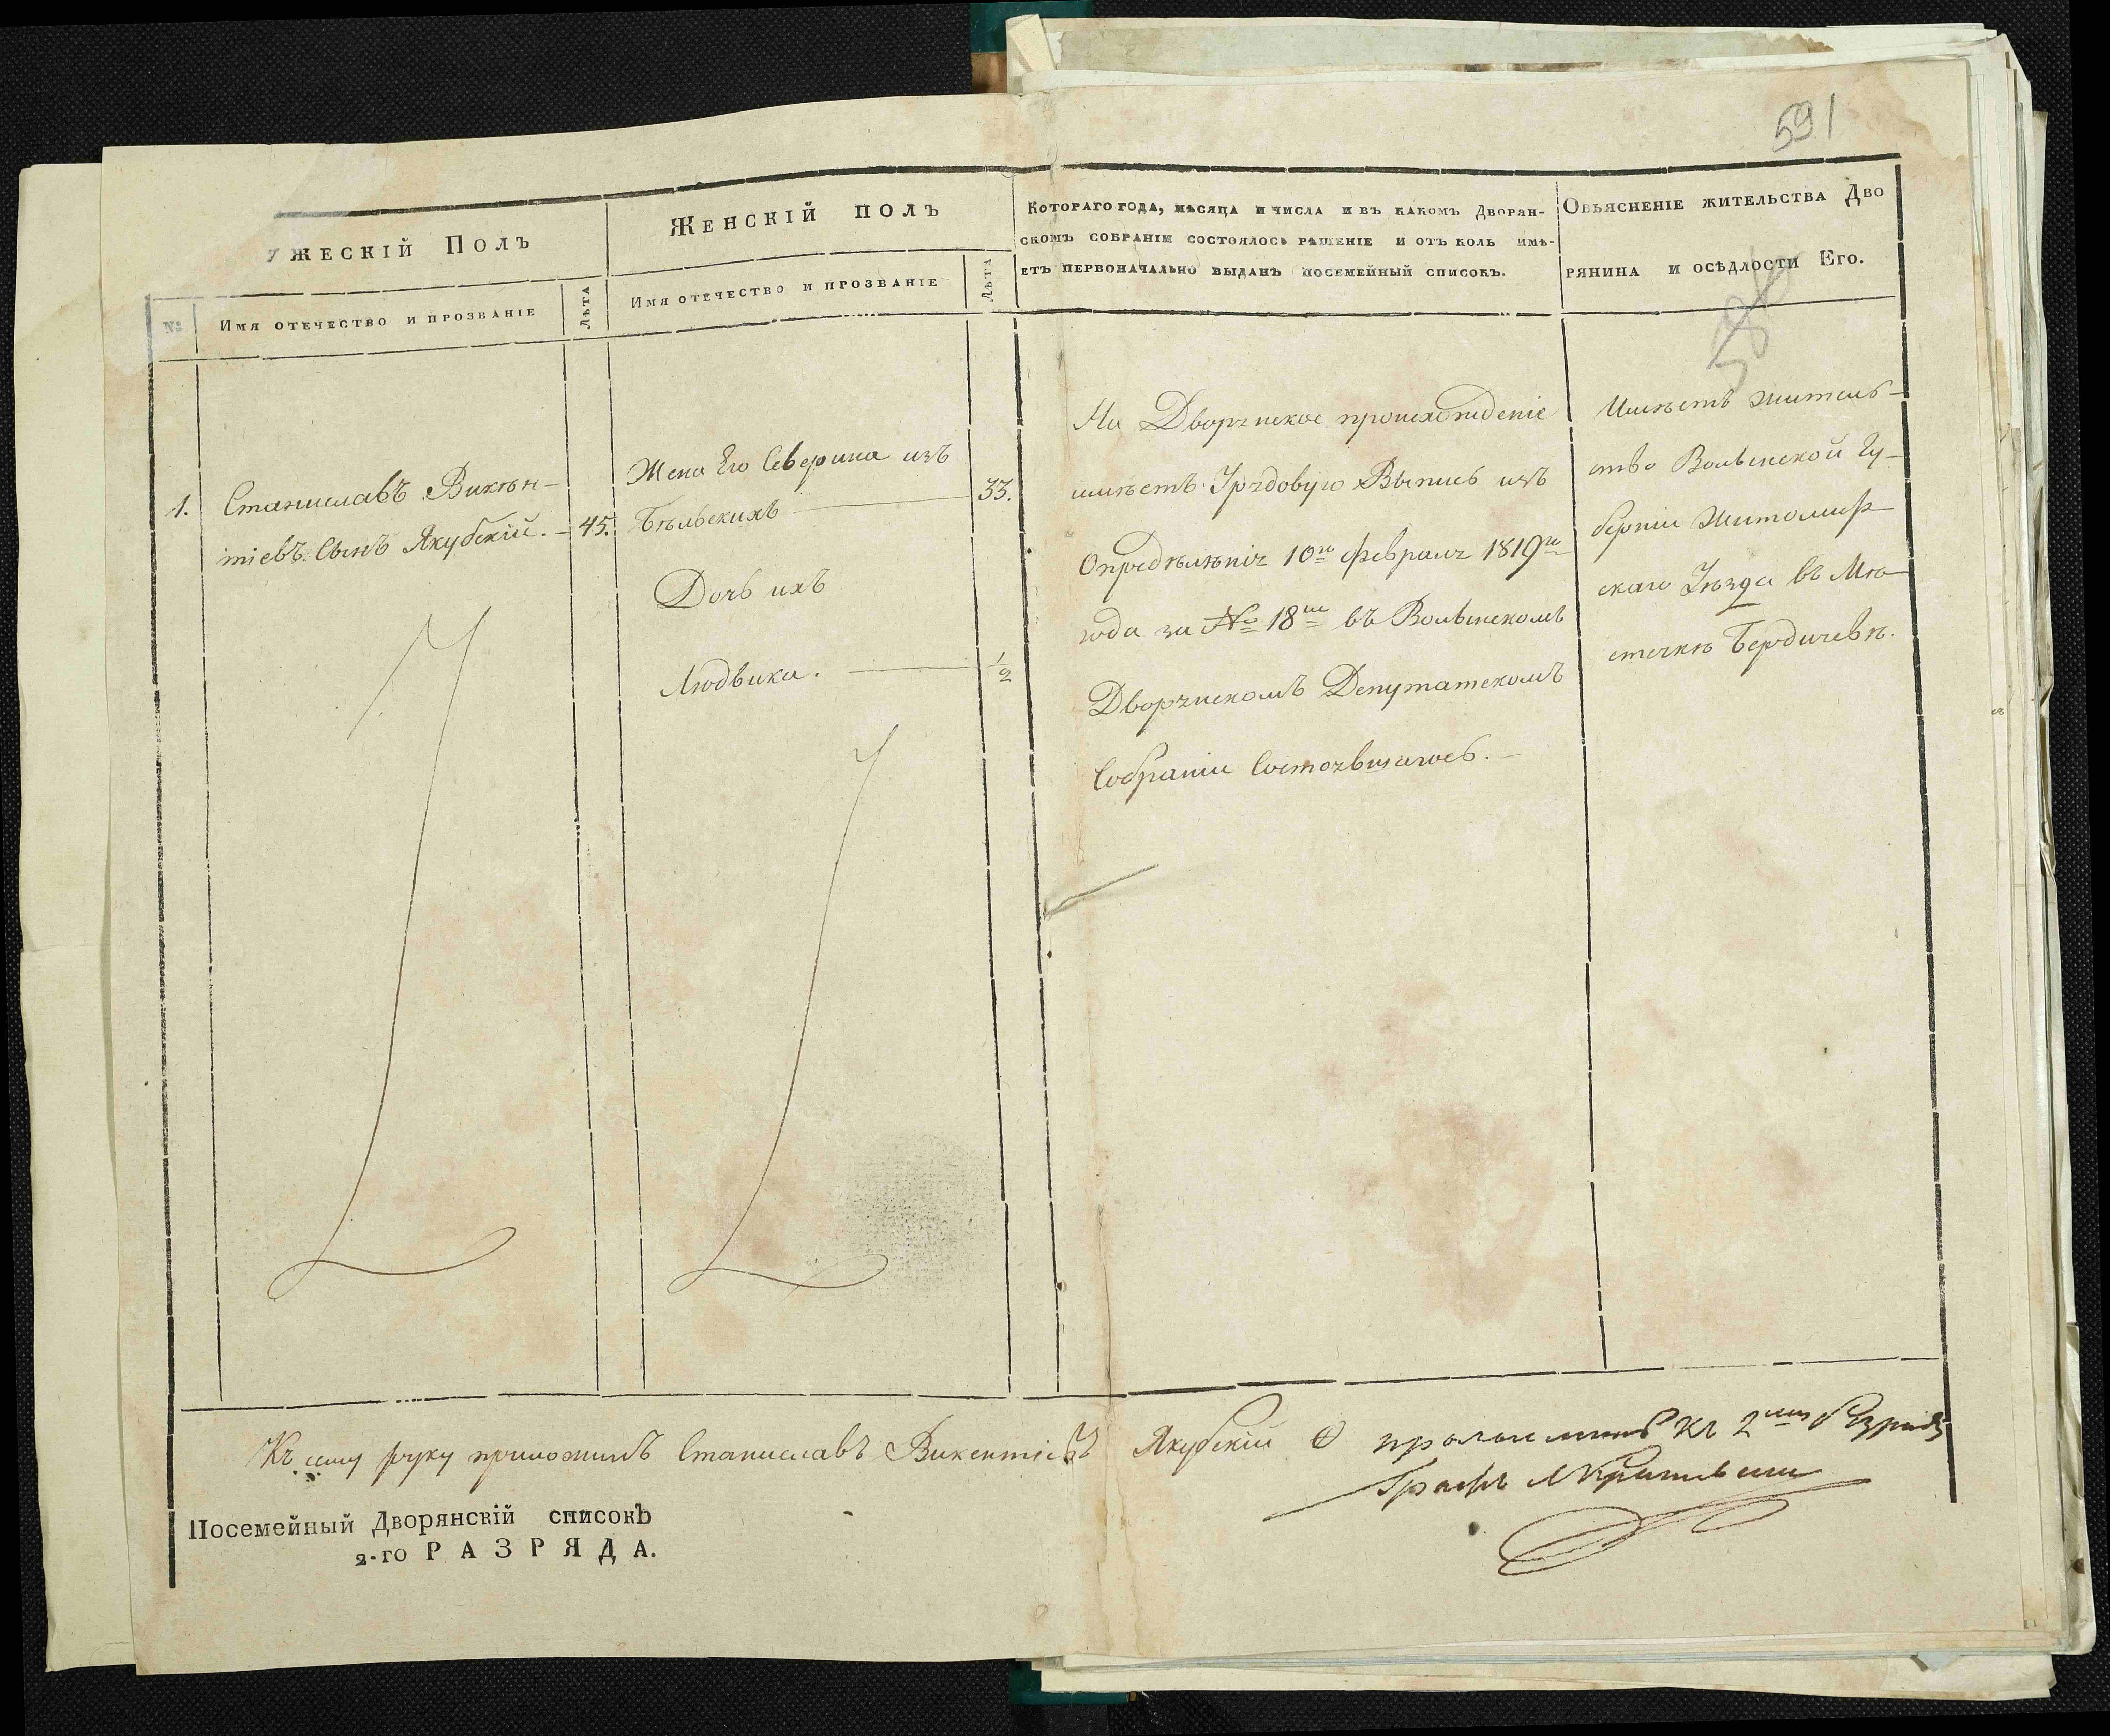 591
ЖЕСКІЙ ПОЛЪ
ЖЕНСКІЙ ПОЛЪ
КОТОРАГО ГОДА, МѢСЯЦА И ЧИСЛА И ВЪ КАКОМЪ ДВОРЯН-
СКОМЪ СОБРАНІИ СОСТОЯЛОСЬ РѢШЕНІЕ И ОТЪ КОЛЬ ИМѢ-
ЕТЪ ПЕРВОНАЧАЛЬНО ВЫДАНЪ ПОСЕМЕЙНЫЙ СПИСОКЪ.
ОБЪЯСНЕНІЕ ЖИТЕЛЬСТВА ДВО
РЯНИНА И ОСѢДЛОСТИ ЕГО.
№ ИМЯ ОТЕЧЕСТВО И ПРОЗВАНІЕ ЛѢТА
ИМЯ ОТЕЧЕСТВО И ПРОЗВАНІЕ ЛѢТА
1. Станиславъ Викѣн-
тіевъ Сынъ Якубскій. 45.
Жена Его Северина изъ
Бѣльскихъ 33.
Дочь ихъ
Людвика. 1/2
На Дворянское происхожденіе
имѣетъ Урядовую Выпись изъ
Опредѣлѣнія 10го Февраля 1819го
года за № 18м въ Волынскомъ
Дворянскомъ Депутатскомъ
Собраніи Состоявшагось.
Имѣетъ жительь-
ство Волынской Гу-
берніи Житомир-
скаго Уѣзда въ Мѣ-
стечкѣ Бердичевѣ.
Къ сему руку приложилъ Станиславъ Викентіевъ Якубскій
къ 2му Разряду
Графъ
Посемейный Дворянскій списокъ
2-го РАЗРЯДА.